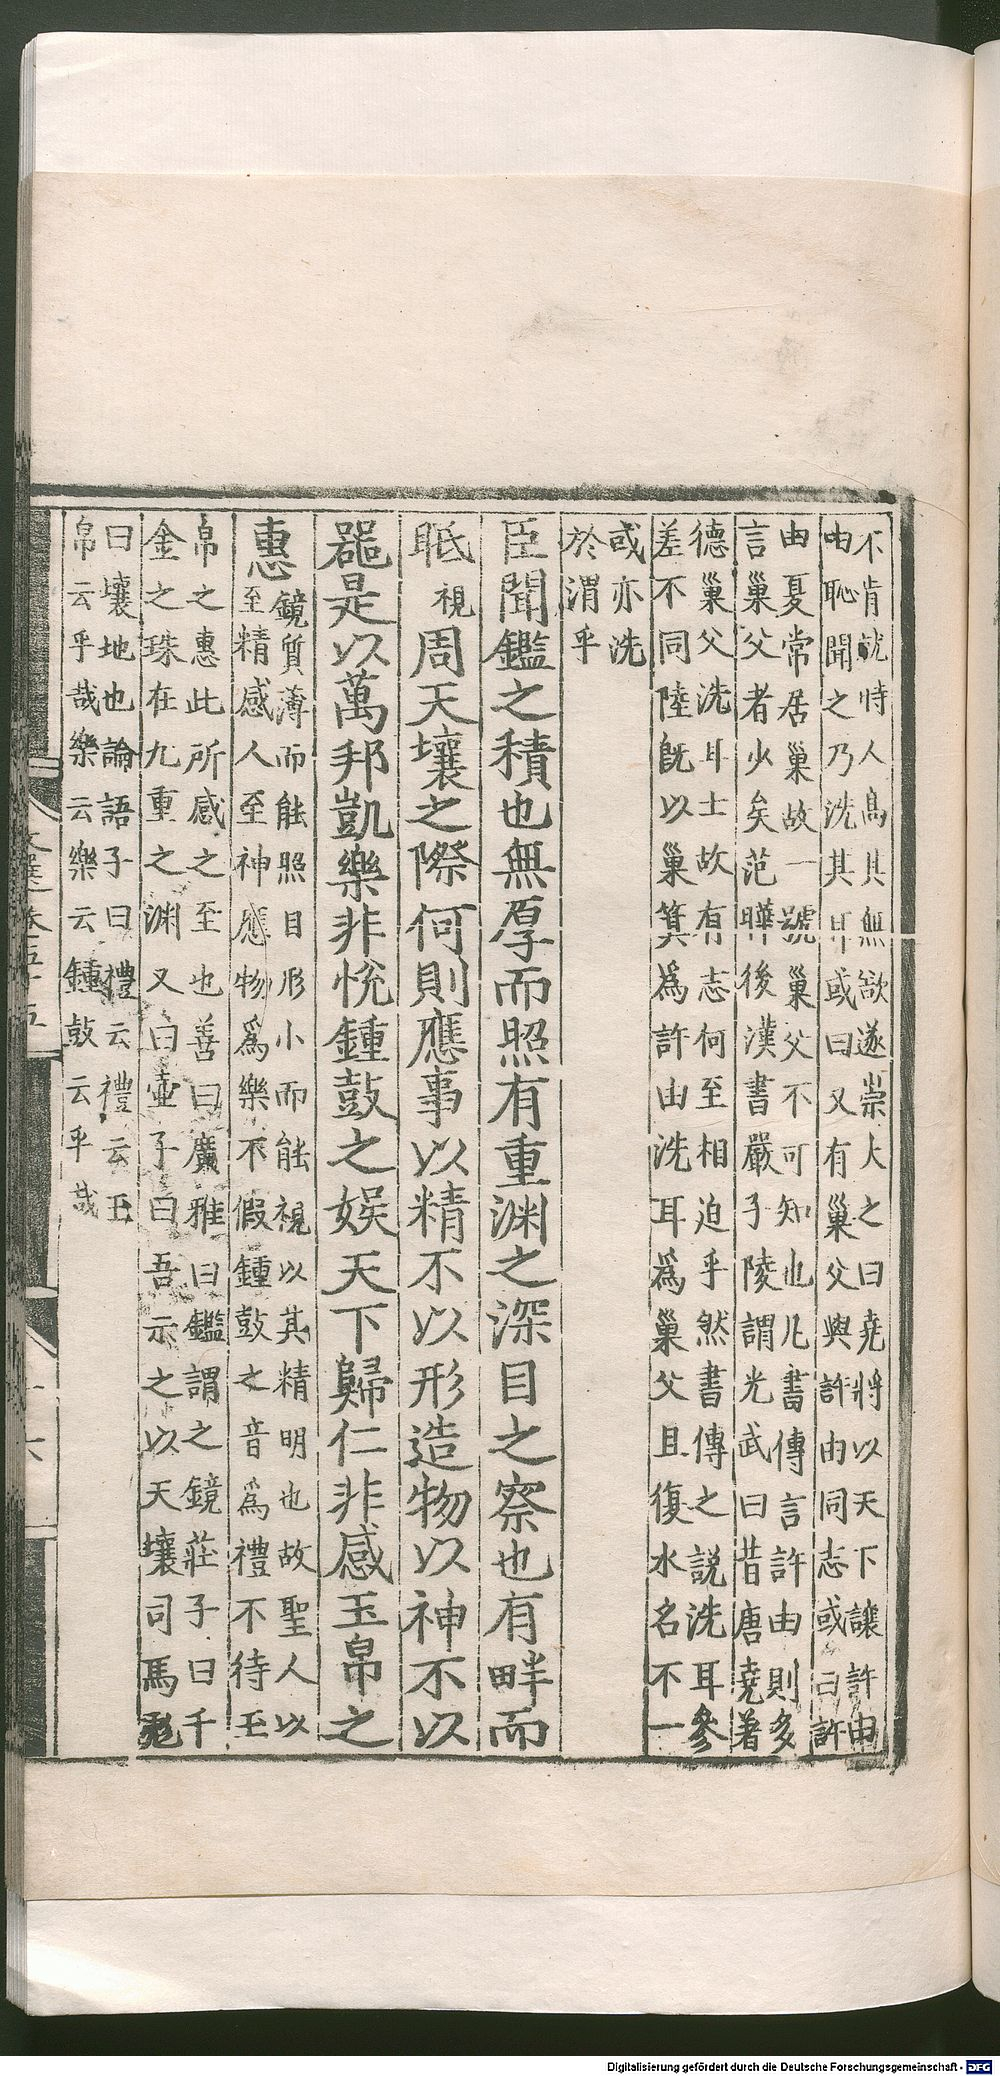 不肯就時人高其無欲遂崇大之曰堯將以天下讓許由
由恥聞之乃洗其耳或曰又有巢父與許由同志或曰許
由夏常居巢故一號巢父不可知也凡書傳言許由則多
言巢父者少矣范曄後漢書嚴子陵謂光武曰昔唐堯著
德巢父洗耳士故有志何至相迫乎然書傳之説洗耳參
差不同陸旣以巢箕爲許由洗耳爲巢父且復水名不一
或亦洗
於渭乎
臣聞鑑之積也無厚而照有重淵之深目之察也有畔而
眂視周天壤之際何則應事以精不以形造物以神不以
噐是以萬邦凱樂非悅鍾鼓之娛天下歸仁非感玉帛之
惠
鏡質薄而能照目形小而能視以其精明也故聖人以
至精感人至神應物爲樂不假鍾鼓之音爲禮不待玉
帛之惠此所感之至也善曰廣雅曰鑑謂之鏡莊子曰千
金之珠在九重之淵又曰壺子曰吾示之以天壤司馬彪
曰壤地也論語子曰禮云禮云玉
帛云乎哉樂云樂云鍾鼓云乎哉
文選卷五十五
十六
Digitalisierung gefördert durch die Deutsche Forschungsgemeinschaft - DFG